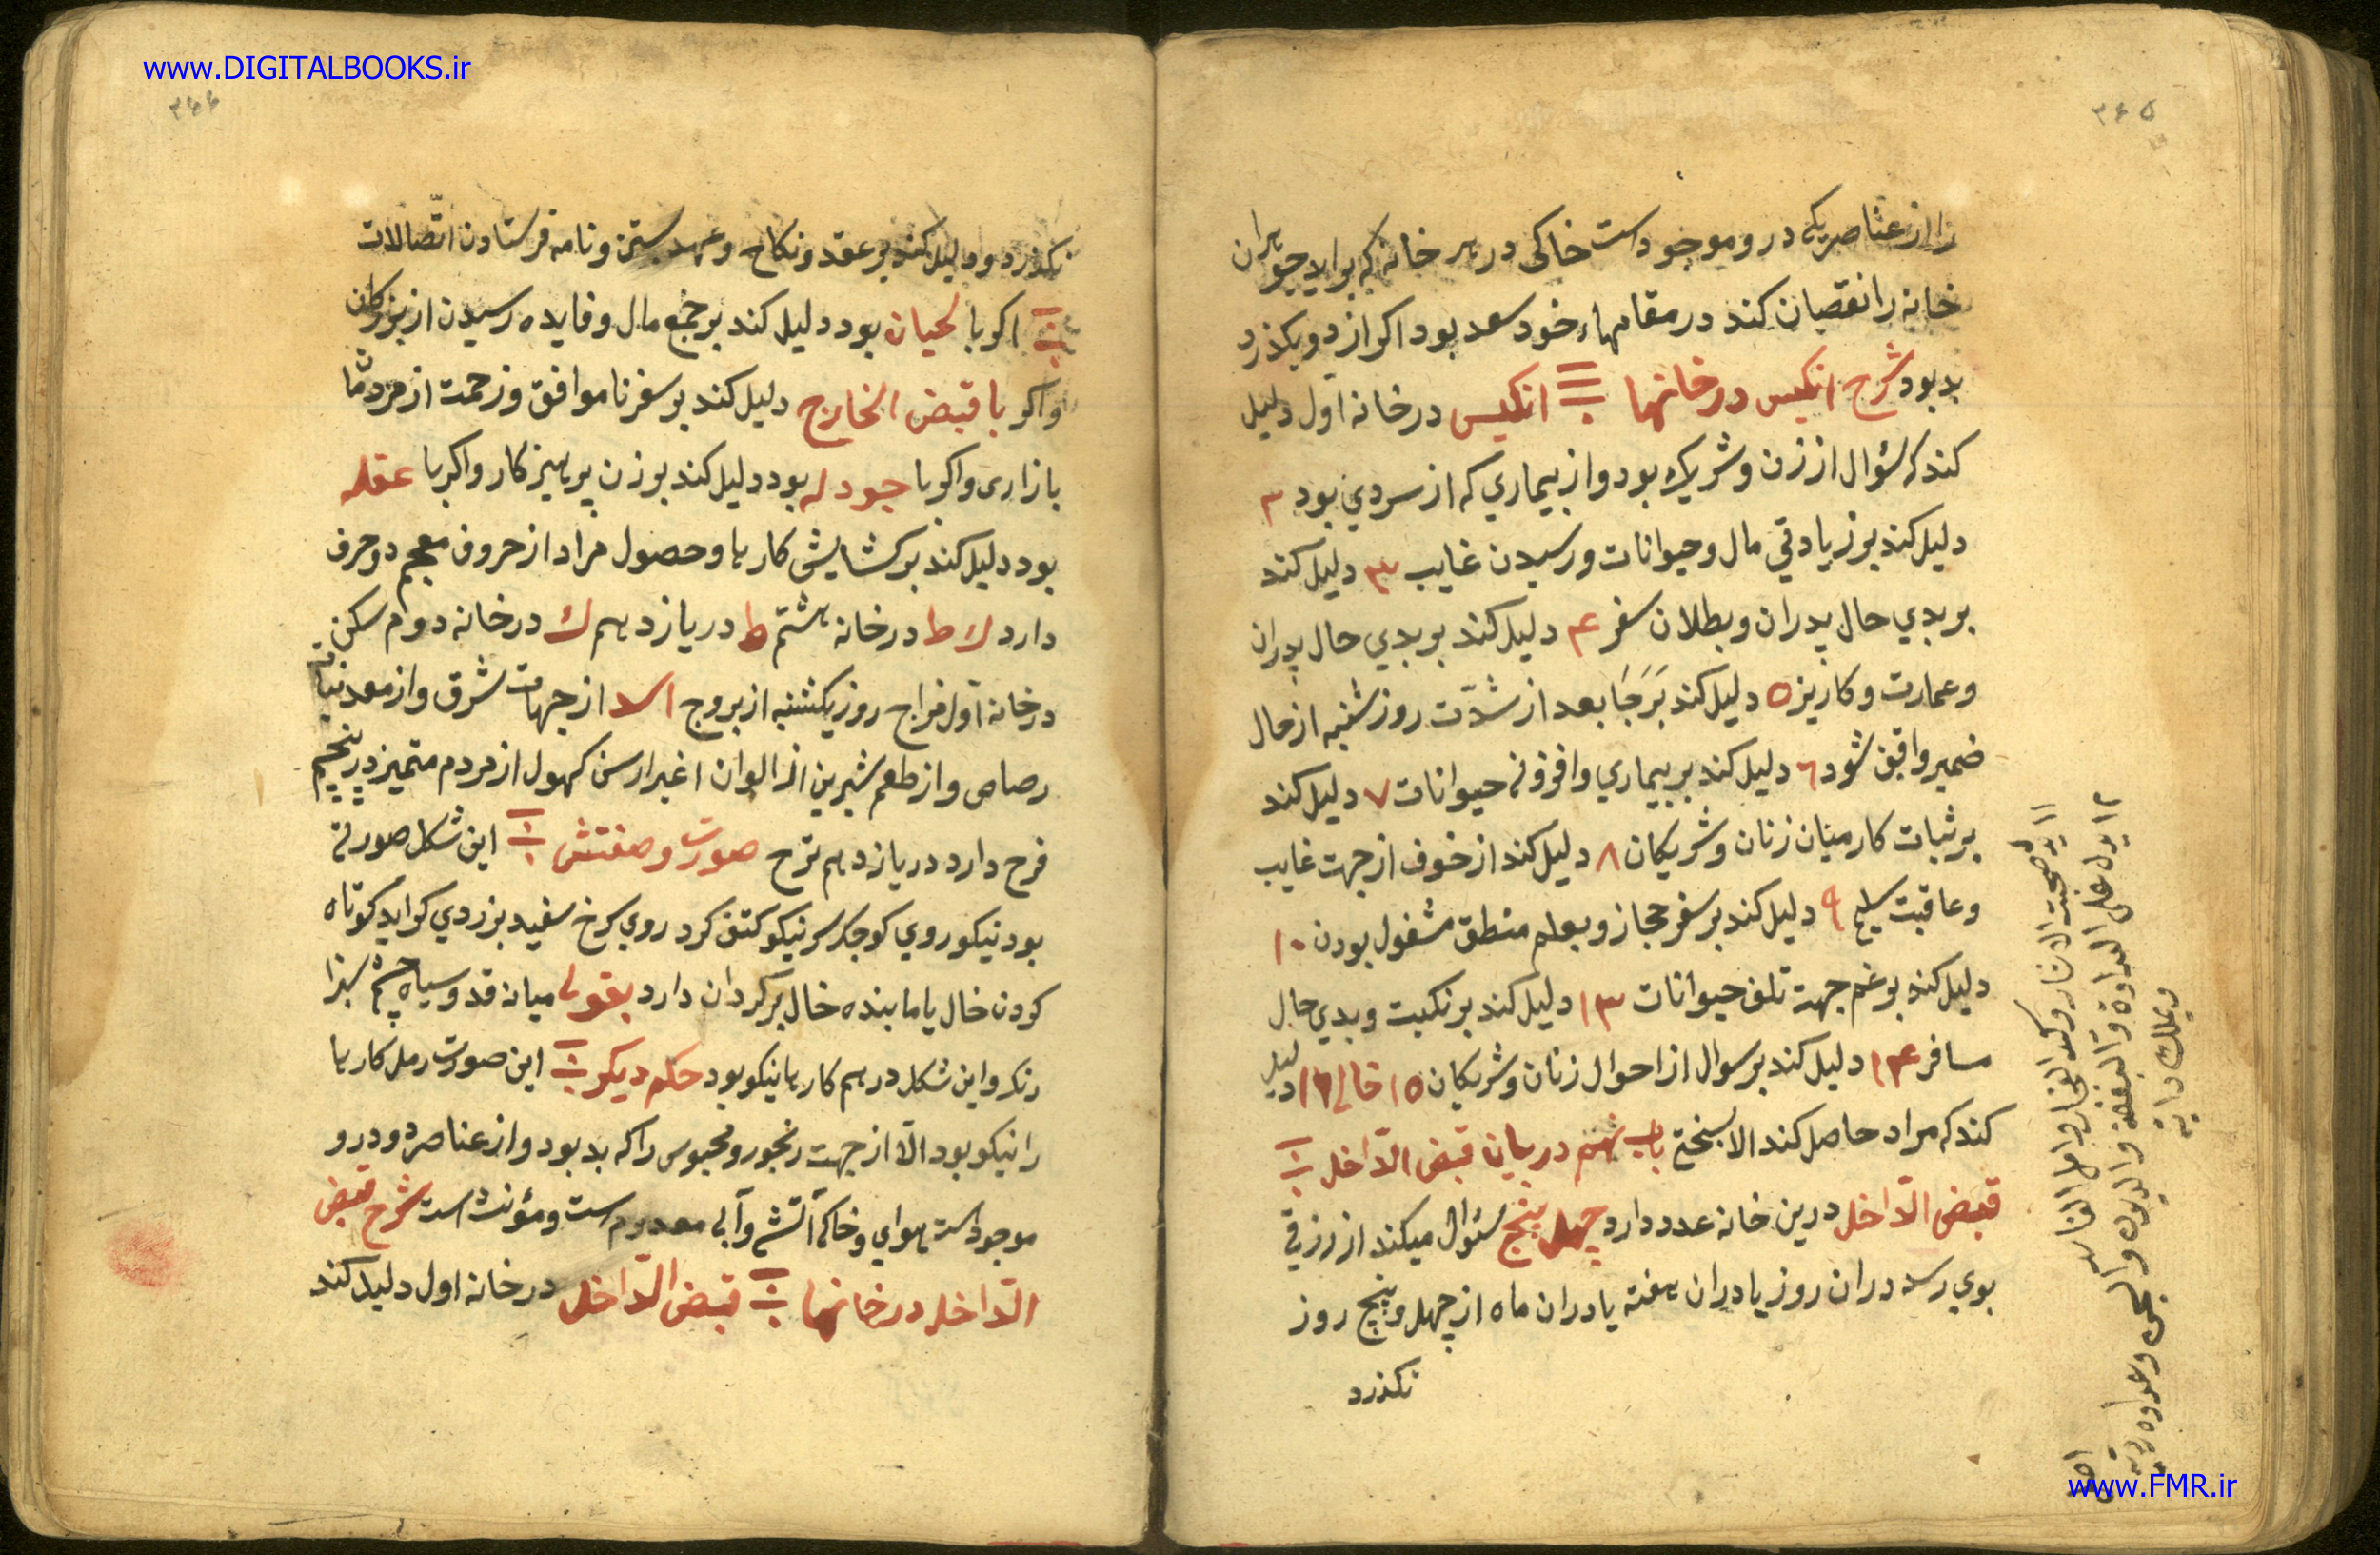 www.DIGITALBOOKS.ir
۳۶۵
را از عناصر یکی درو موجودست خاکی در هر خانه که براید جو یران
خانه را نقصان کند در مقامهاء خود سعد بود اکر از دو یکذرد
بد بود شرح انکیس در خانها انکیس در خانه اول دلیل
کند که سئوال از زن و شریک بود و از بیماري که از سردي بود ۲
دلیل کند بر زیادتي مال و حیوانات و رسیدن غایب ۳ دلیل کند
بر بدي حال پدران و بطلان سفر ۴ دلیل کند بر بدي حال پدران
و عمارت و کاریز ۵ دلیل کند بَر رَجَا بعد از شدّت روز شنبه از حال
ضمیر واقف شود ٦ دلیل کند بر بیماري و افزونی حیوانات ۷ دلیل کند
بر ثبات کار میان زنان و شریکان ۸ دلیل کند از خوف از جهت غایب
و عاقبت سلیم ۹ دلیل کند بر سفر حجاز و بعلم منطق مشغول بودن ۱۰
دلیل کند بر غم جهت تلف حیوانات ۱۳ دلیل کند بر نکبت و بدي حال
مسافر ۱۴ دلیل کند بر سوال از احوال زنان و شریکان ۱۵ خالی ۱۶ دلیل
کند که مراد حاصل کند الا بسختی باب نهم در بیان قبض الدّاخل
قبض الدّاخل درین خانه عدد دارد چهل پنج سئوال میکند از رزقی
بوي رسد دران روز یا دران هفته یا دران ماه از چهل و پنج روز
نکذرد
۱۱ یدل صحبت
۱۲ یدل علی العداوة والبغض والدیون والسجن وعداوه
ویملك دابة
www.FMR.ir
۳۶۶
نکذرد و دلیل کند بر عقد و نکاح و عهد بستن و نامه فرستادن اتّصالات
اکر با لحیان بود دلیل کند بر جمع مال و فایده رسیدن از بزرکان
و اکر با قبض الخارج دلیل کند بر سفر ناموافق و زحمت از مردمان
بازاری و اکر با جودله بود دلیل کند بر زن پرهیزکار و اکر با عقله
بود دلیل کند بر کشایش کارها و حصول مراد از حروف معجم دو حرف
دارد ك ط در خانه هشتم ط در یازدهم ك در خانه دوم سکن
در خانه اول مزاج روز یکشنبه از بروج اسد از جهات شرق و از معدنیات
رصاص و از طعم شیرین از الوان اغبر از سن کهول از مردم متمیز در پنجم
فرح دارد در یازدهم ترح صورت و صفتش این شکل صورتی
بود نیکو روي کوجک سر نیکو کتف کرد روي سرخ سفید بزردي کراید کوتاه
کردن خال یا مابنده خال بر کردان دارد بقولی میانه قد و سیاه چشم سبزا
رنک و این شکل در همه کارها نیکو بود حکم دیکر این صورت رمل کارها
را نیکو بود الّا از جهت رنجور و محبوس را که بد بود و از عناصر دو درو
موجودست هوايي و خاکي آتشي و آبي معدومست و مؤنث است شرح قبض
الدّاخل در خانها قبض الدّاخل در خانه اول دلیل کند